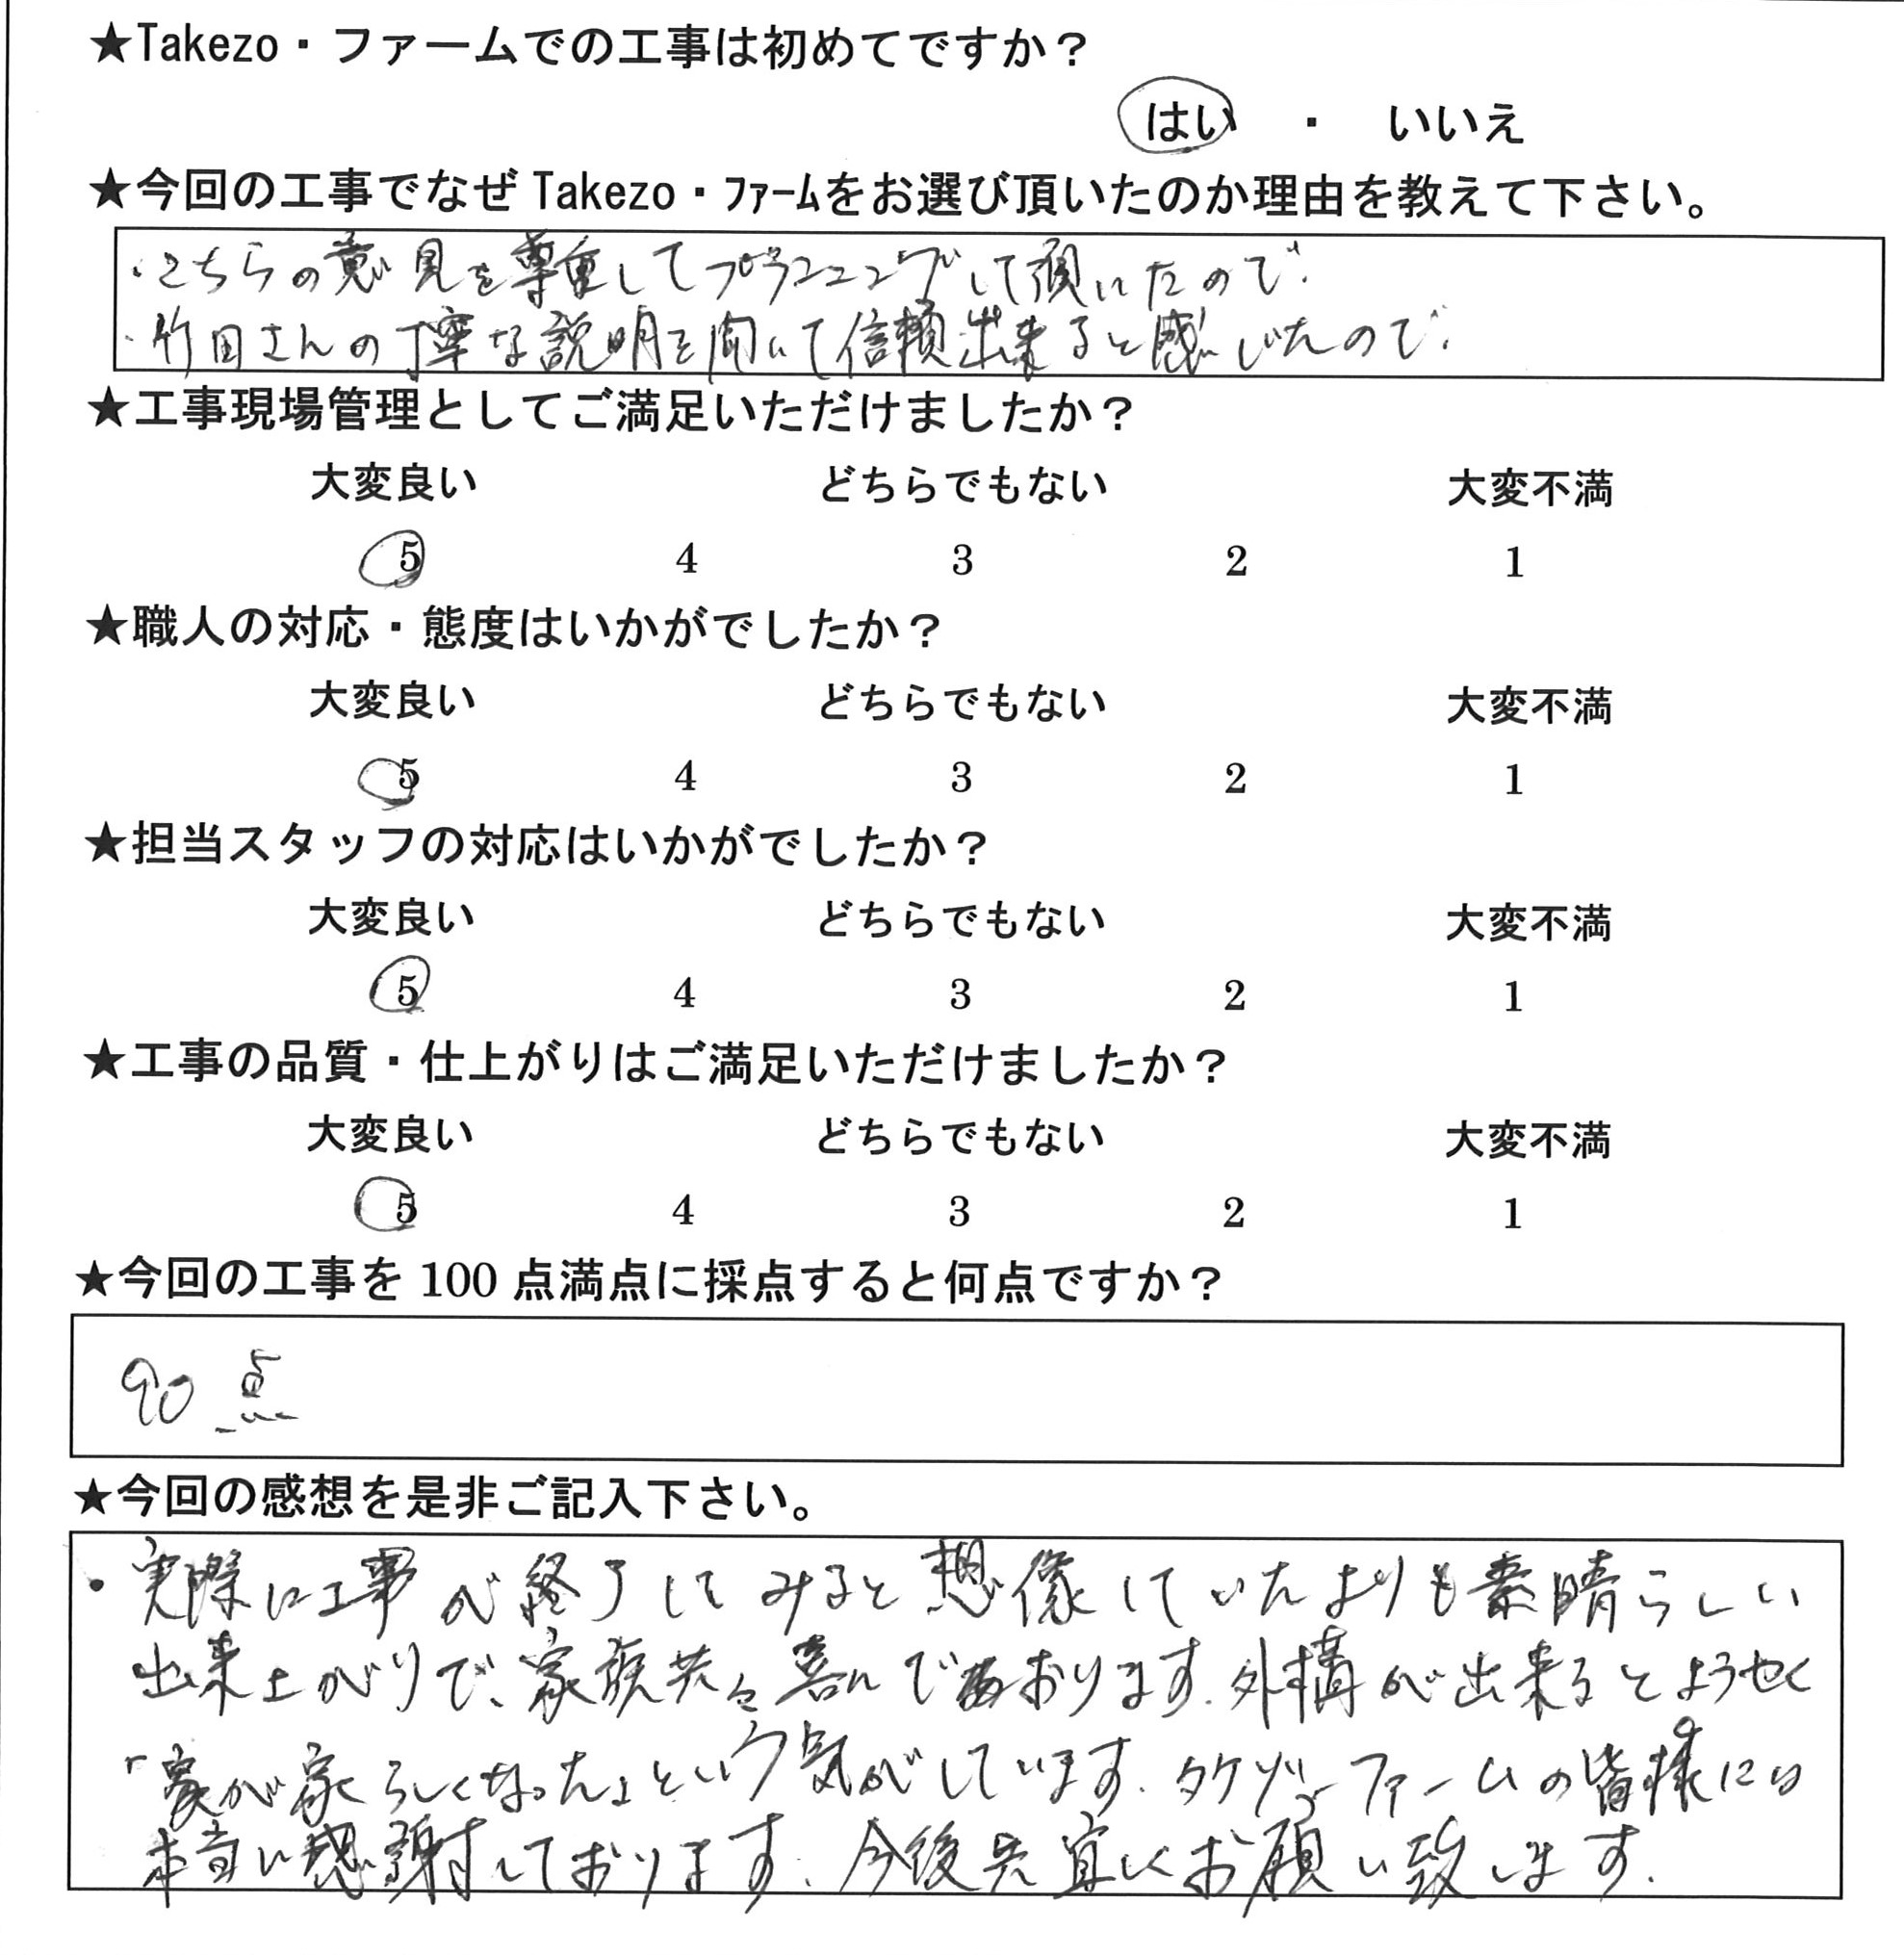 ★Takezo・ファームでの工事は初めてですか？
はい ・ いいえ
★今回の工事でなぜ Takezo・ﾌｧｰﾑをお選び頂いたのか理由を教えて下さい。
・こちらの意見を尊重してプランニングして頂いたので.
・竹田さんの丁寧な説明を聞いて信頼出来ると感じたので.
★工事現場管理としてご満足いただけましたか？
大変良い どちらでもない 大変不満
5 4 3 2 1
★職人の対応・態度はいかがでしたか？
大変良い どちらでもない 大変不満
5 4 3 2 1
★担当スタッフの対応はいかがでしたか？
大変良い どちらでもない 大変不満
5 4 3 2 1
★工事の品質・仕上がりはご満足いただけましたか？
大変良い どちらでもない 大変不満
5 4 3 2 1
★今回の工事を 100 点満点に採点すると何点ですか？
90 点
★今回の感想を是非ご記入下さい。
・実際に工事が終了してみると想像していたよりも素晴らしい
出来上がりで、家族共々喜んでおります.外構が出来るとようやく
「家が家らしくなった」という気がしています.タケゾーファームの皆様には
本当に感謝しております.今後共宜しくお願い致します.